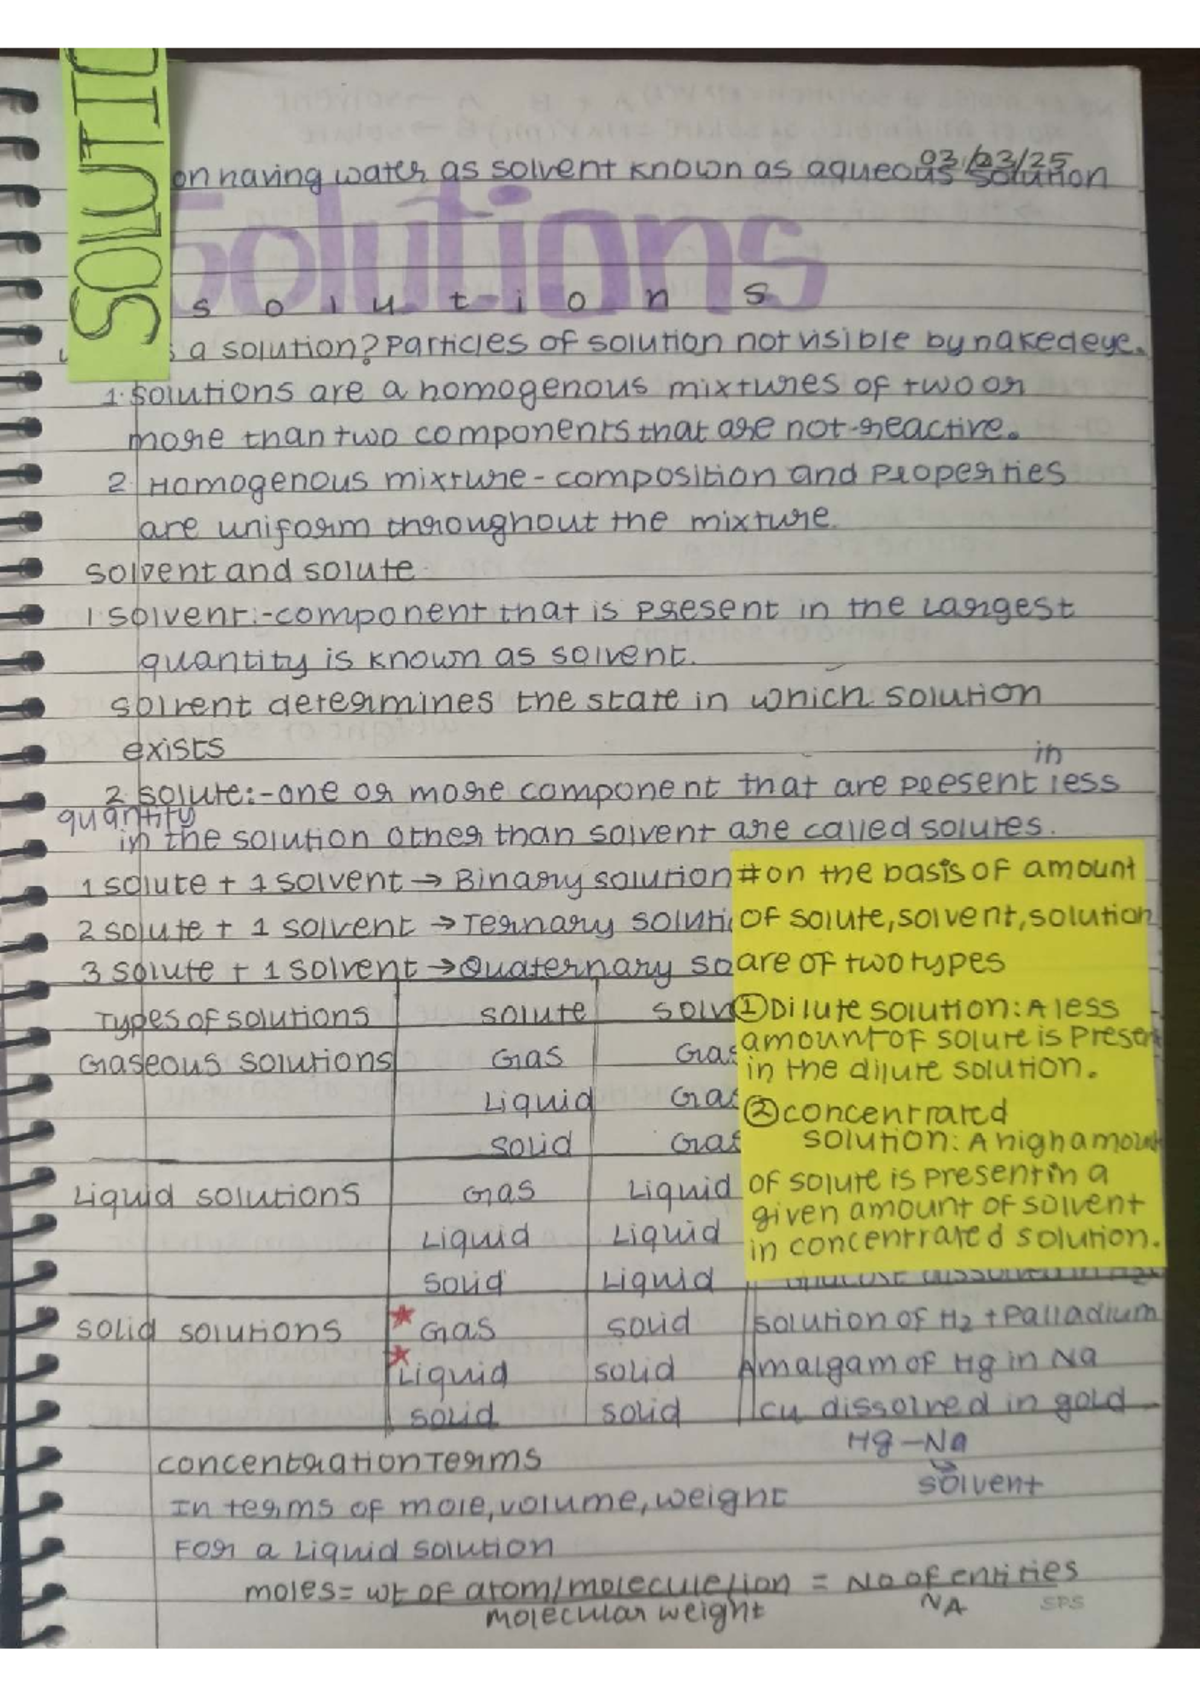 SOLUTIO
03/03/25
on having water as solvent known as aqueous solution
Solutions
s o l u t i o n s
s a solution? Particles of solution not visible by naked eye.
1. solutions are a homogenous mixtures of two or
more than two components that are not-reactive.
2. Homogenous mixture - composition and Properties
are uniform throughout the mixture.
solvent and solute
1 solvent:- component that is present in the Largest
quantity is known as solvent.
solvent determines the state in which solution
exists
2 solute:- one or more component that are present in less
quantity
in the solution other than solvent are called solutes.
1 solute + 1 solvent → Binary solution
2 solute + 1 solvent → Ternary soluti
3 solute + 1 solvent → Quaternary so
# on the basis of amount
of solute, solvent, solution
are of two types
① Dilute solution: A less
amount of solute is Present
in the dilute solution.
② concentrated
solution: A high amount
of solute is present in a
given amount of solvent
in concentrated solution.
Types of solutions solute solv
Gaseous solutions Gas Gas
Liquid Gas
solid Gas
Liquid solutions Gas Liquid
Liquid Liquid
Solid Liquid
solid solutions Gas solid solution of H2 + Palladium
Liquid solid Amalgam of Hg in Na
solid solid cu dissolved in gold
Hg - Na
solvent
concentration Terms
In terms of mole, volume, weight
For a Liquid solution
moles = wt of atom/molecule/ion / molecular weight = No of entities / NA
SPS